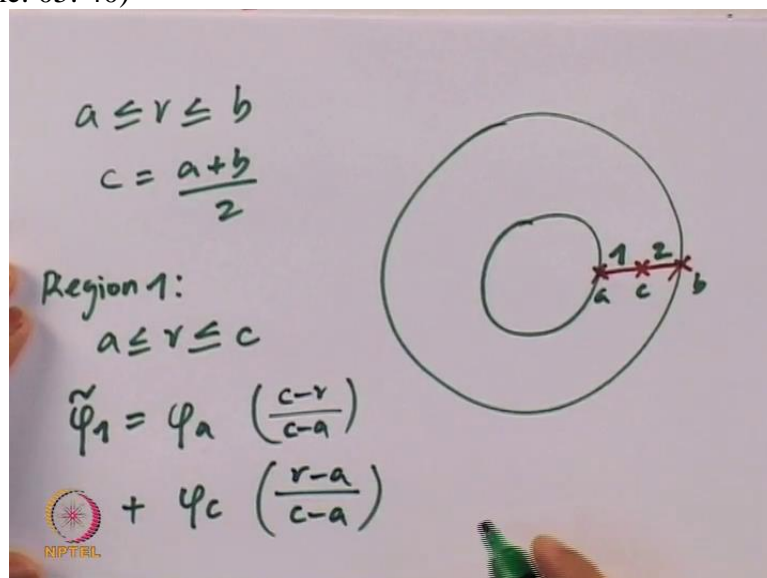 a ≤ r ≤ b
c = (a+b)/2
Region 1:
a ≤ r ≤ c
φ̃₁ = φₐ ((c-r)/(c-a))
+ φ_c ((r-a)/(c-a))
1 2
a c b
NPTEL